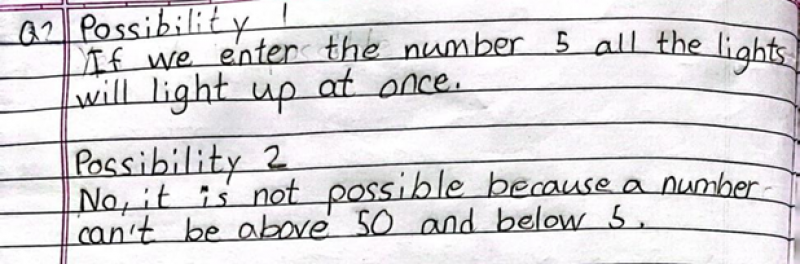 Q2 Possibility 1
If we enter the number 5 all the lights
will light up at once.
Possibility 2
No, it is not possible because a number
can't be above 50 and below 5.